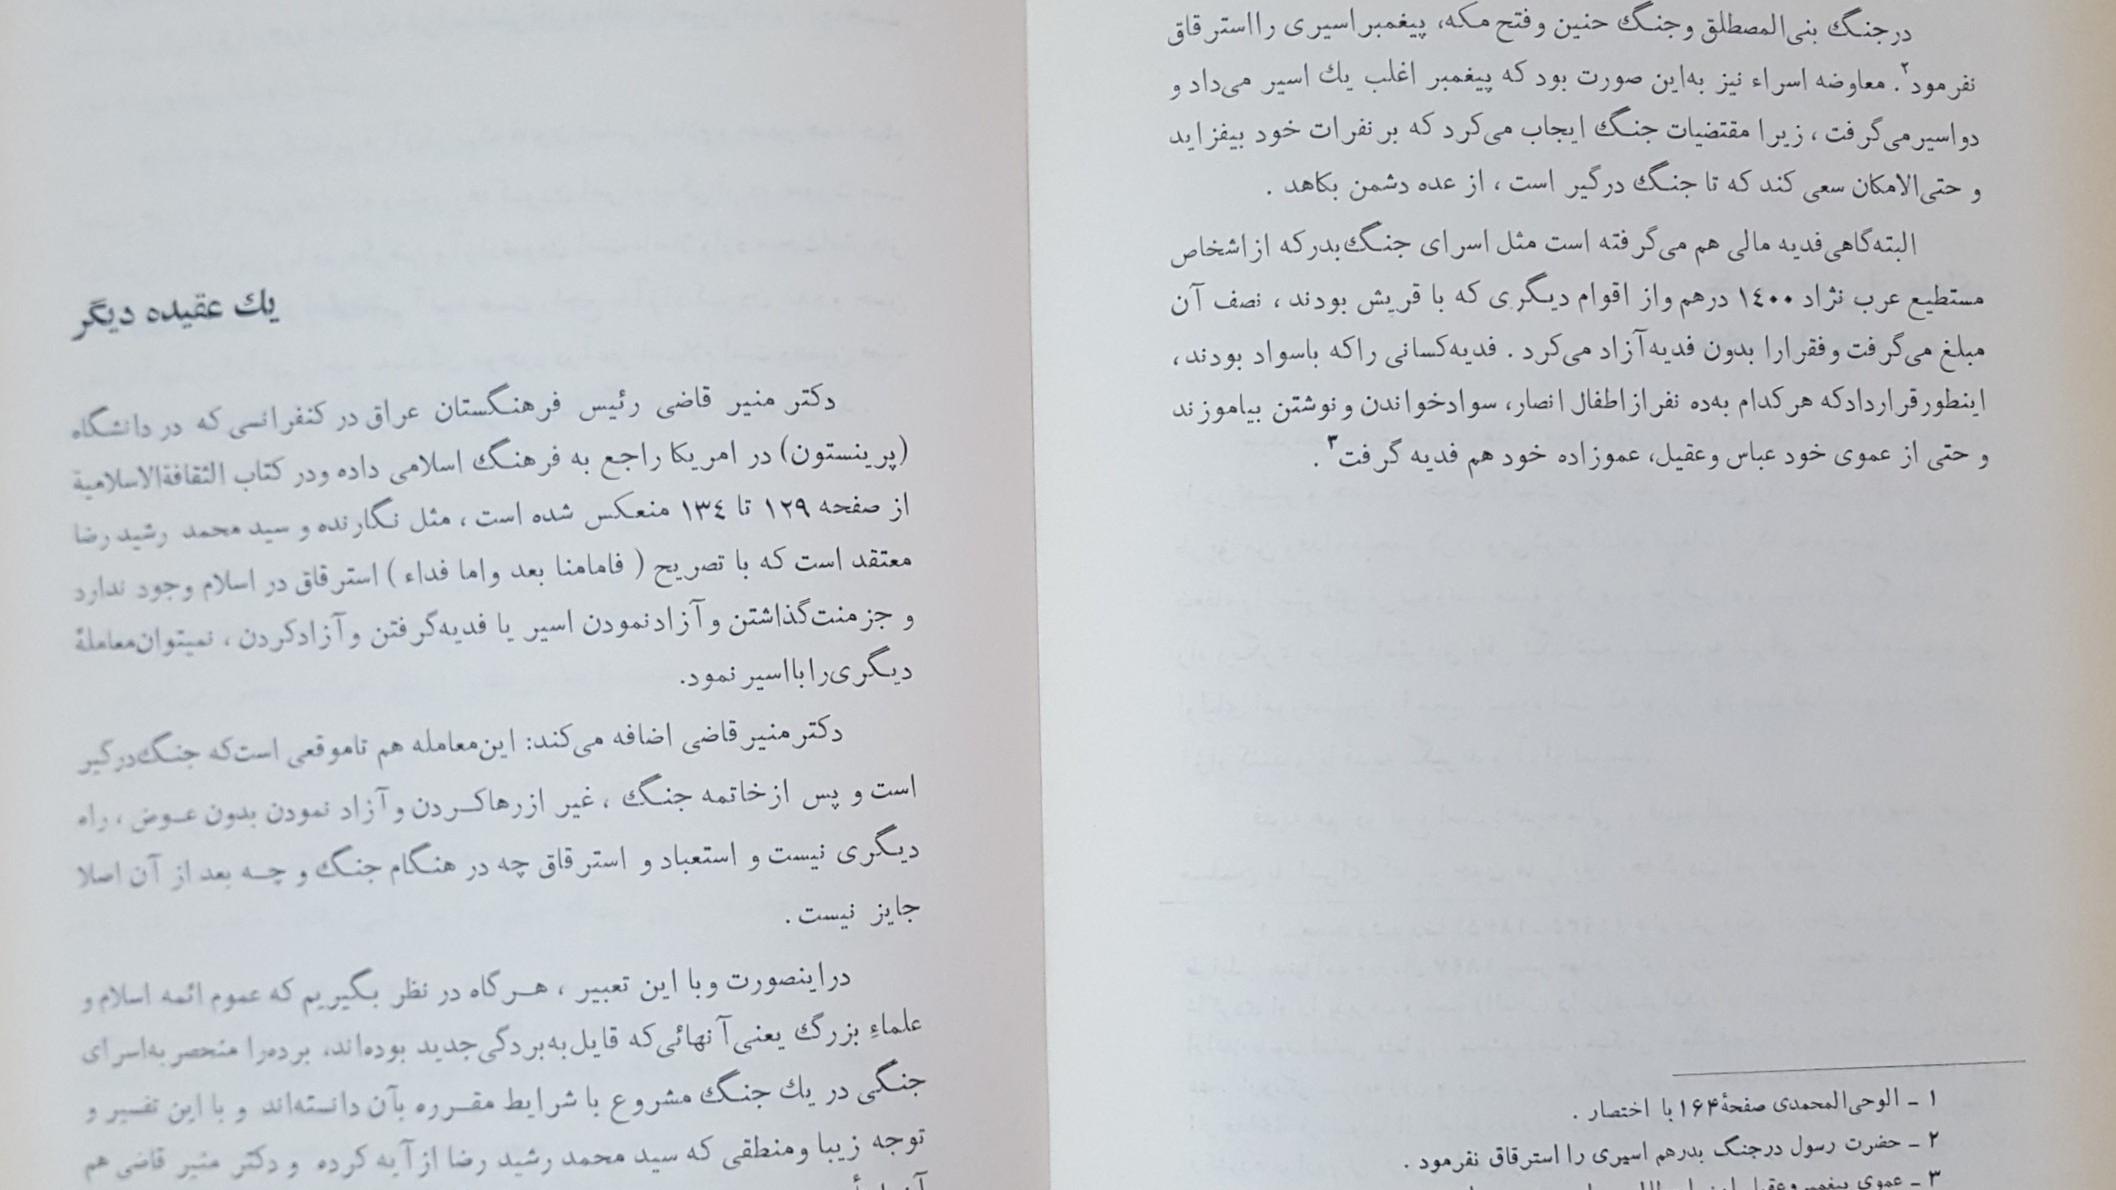 درجنگ بنی‌المصطلق وجنگ حنین وفتح مکه، پیغمبراسیری رااسترقاق
نفرمود۲. معاوضه اسراء نیز به‌این صورت بود که پیغمبر اغلب یك اسیر می‌داد و
دواسیرمی‌گرفت ، زیرا مقتضیات جنگ ایجاب می‌کرد که برنفرات خود بیفزاید
و حتی‌الامکان سعی کند که تا جنگ درگیر است ، از عده دشمن بکاهد .
البته‌گاهی‌فدیه مالی هم می‌گرفته است مثل اسرای جنگ‌بدرکه ازاشخاص
مستطیع عرب نژاد ۱۴۰۰ درهم واز اقوام دیگری که با قریش بودند ، نصف آن
مبلغ می‌گرفت وفقرارا بدون فدیه‌آزاد می‌کرد . فدیه‌کسانی راکه باسواد بودند ،
اینطورقراردادکه هرکدام به‌ده نفرازاطفال انصار، سوادخواندن ونوشتن بیاموزند
و حتی از عموی خود عباس وعقیل، عموزاده خود هم فدیه گرفت۳ .
۱ ـ الوحی‌المحمدی صفحهٔ۱۶۴ با اختصار .
۲ ـ حضرت رسول درجنگ بدرهم اسیری را استرقاق نفرمود .
۳ ـ عموی پیغمبر وعقیل
یك عقیده دیگر
دکتر منیر قاضی رئیس فرهنگستان عراق درکنفرانسی که در دانشگاه
(پرینستون) در امریکا راجع به فرهنگ اسلامی داده ودر کتاب الثقافةالاسلامیة
از صفحه ۱۲۹ تا ۱۳۴ منعکس شده است ، مثل نگارنده و سید محمد رشید رضا
معتقد است که با تصریح ( فامامنا بعد واما فداء ) استرقاق در اسلام وجود ندارد
و جزمنت‌گذاشتن وآزادنمودن اسیر یا فدیه‌گرفتن وآزادکردن ، نمیتوان‌معاملهٔ
دیگری‌رابااسیر نمود.
دکترمنیرقاضی اضافه می‌کند: این‌معامله هم تاموقعی است‌که جنگ‌درگیر
است و پس ازخاتمه جنگ ، غیر ازرهاکردن وآزاد نمودن بدون عوض ، راه
دیگری نیست و استعباد و استرقاق چه در هنگام جنگ و چه بعد از آن اصلا
جایز نیست .
دراینصورت وبا این تعبیر ، هرگاه در نظر بگیریم که عموم ائمه اسلام و
علماء بزرگ یعنی‌آنهائی‌که قایل‌به‌بردگی‌جدید بوده‌اند، برده‌را منحصر به‌اسرای
جنگی در یك جنگ مشروع با شرایط مقرره بآن دانسته‌اند و با این تفسیر و
توجه زیبا ومنطقی که سید محمد رشید رضا ازآیه کرده و دکتر منیر قاضی هم